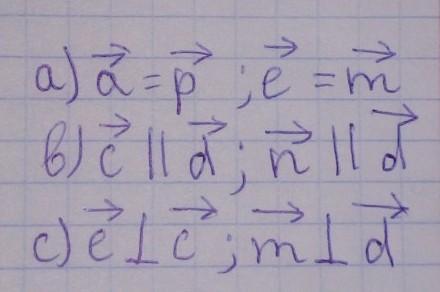 a) \vec{a} = \vec{p} ; \vec{e} = \vec{m}
b) \vec{c} || \vec{d} ; \vec{n} || \vec{d}
c) \vec{e} ⊥ \vec{c} ; \vec{m} ⊥ \vec{d}